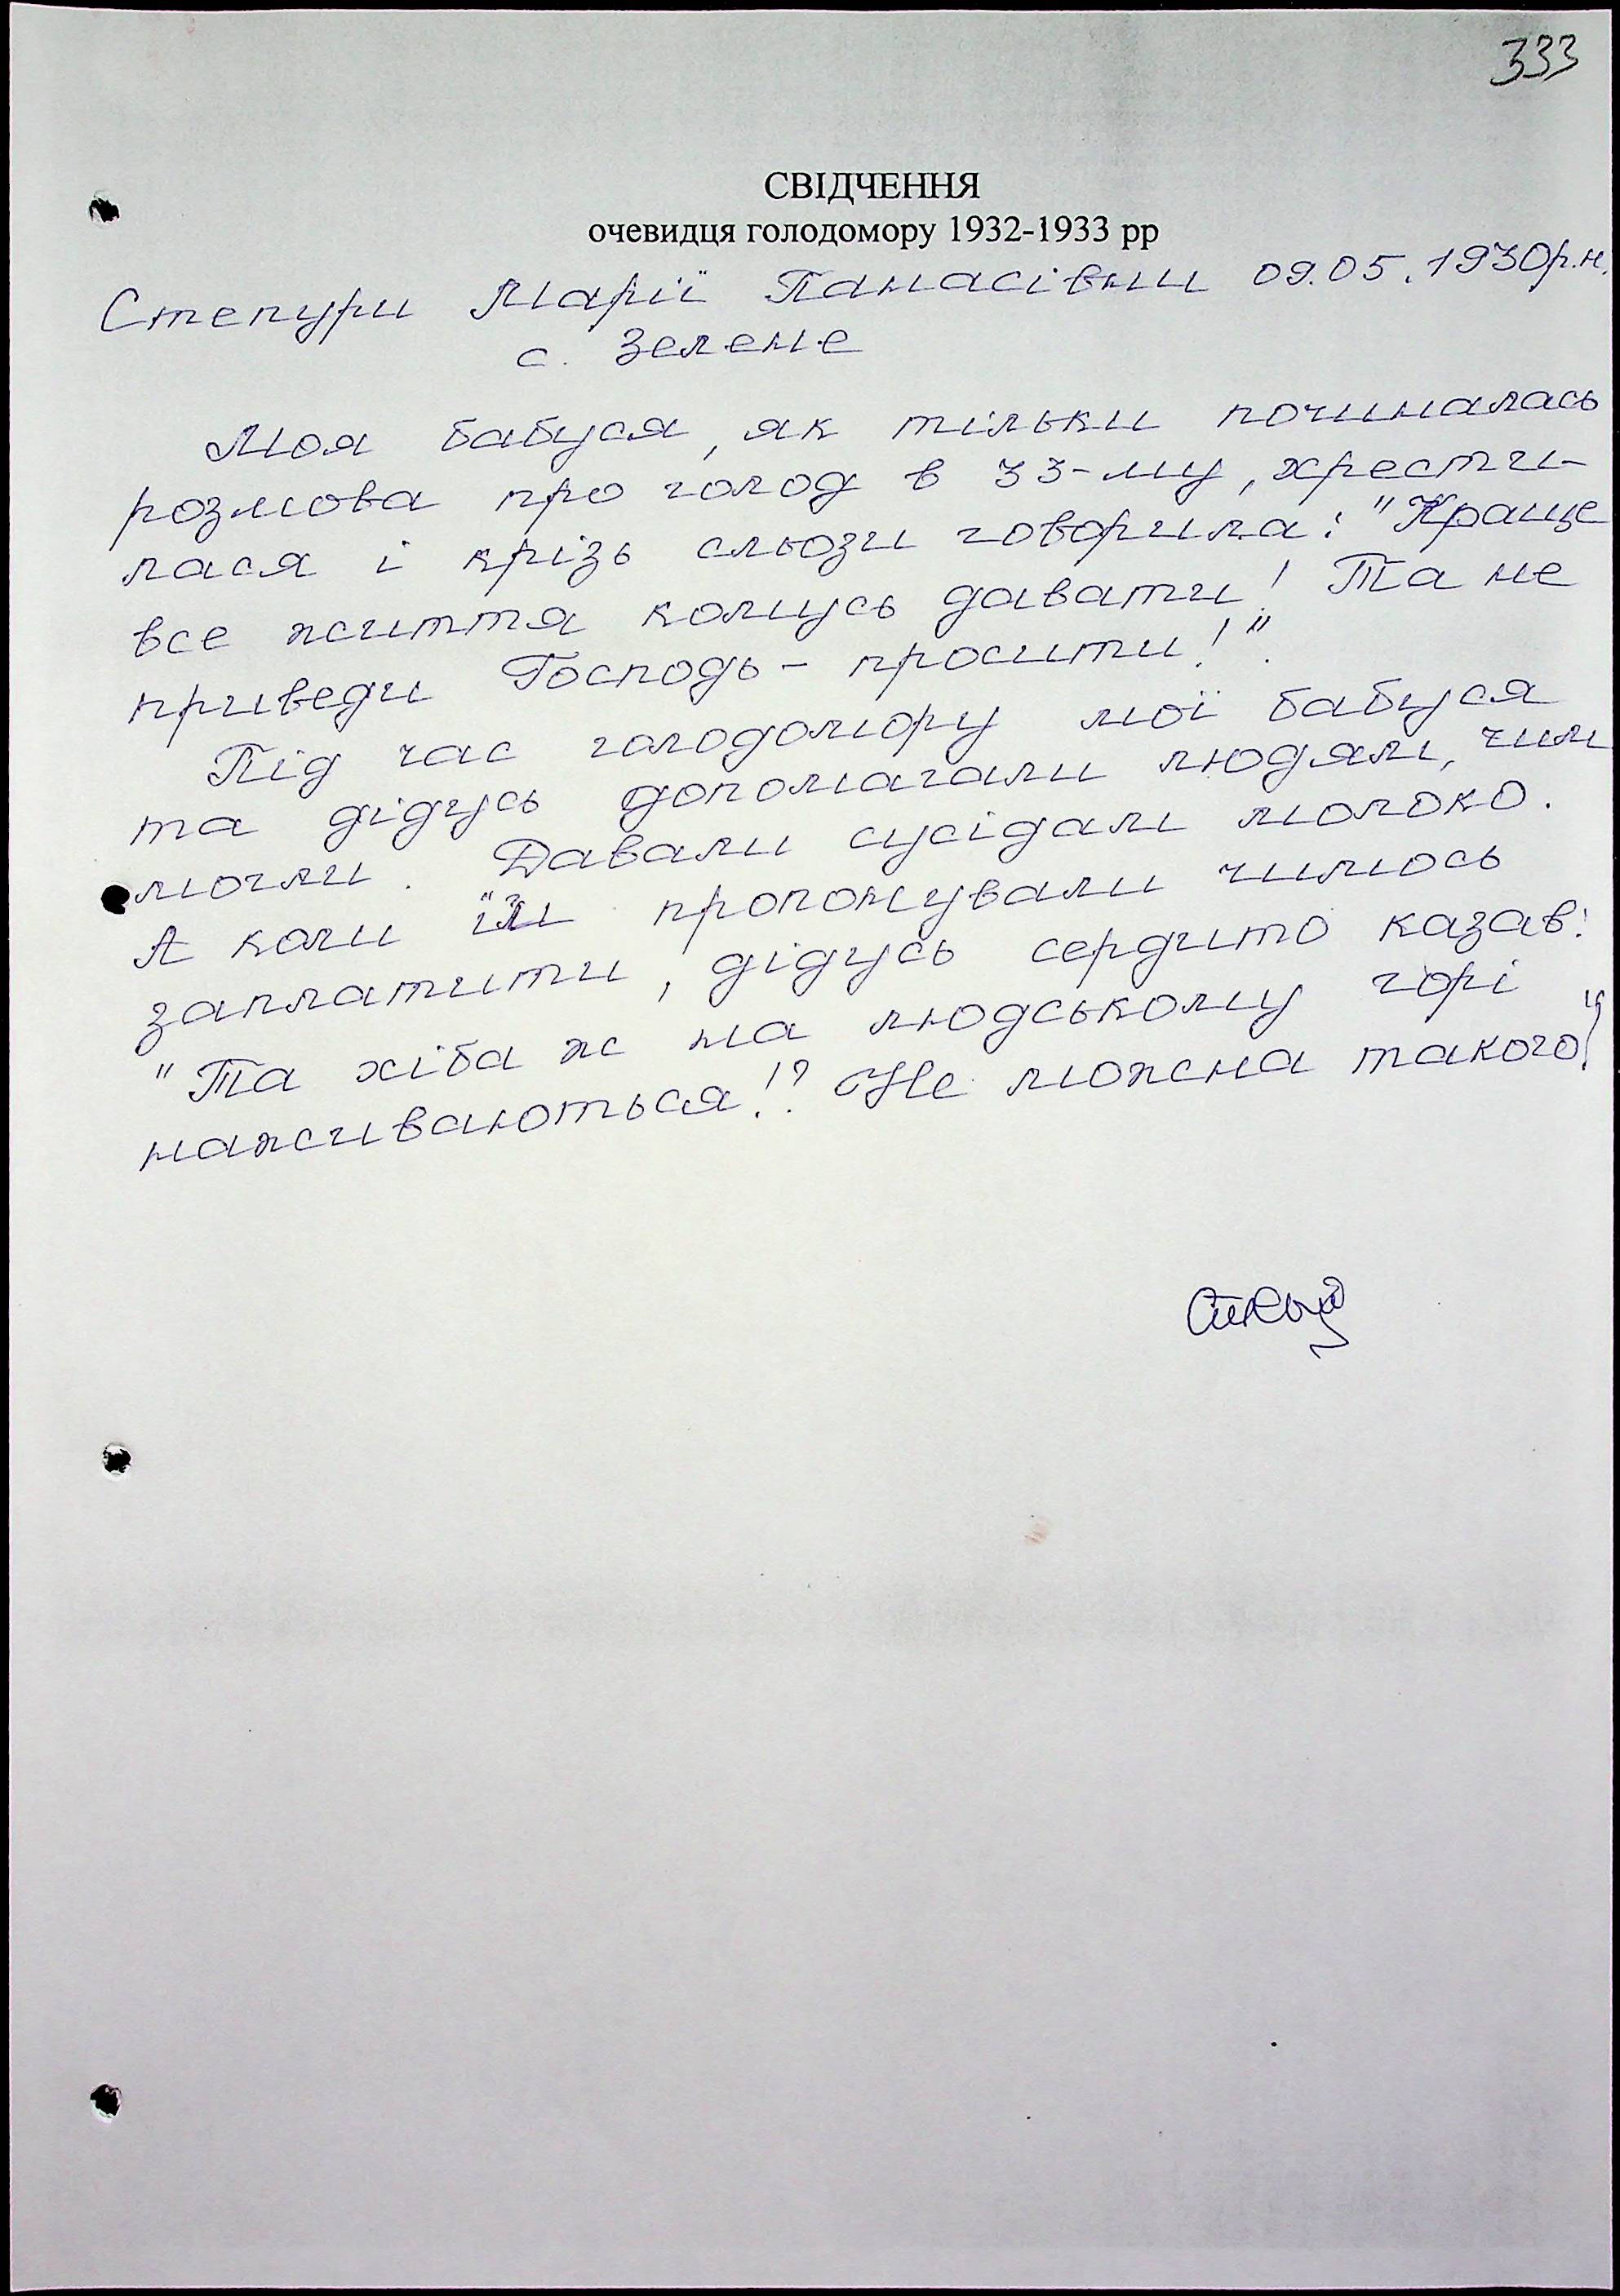 333
СВІДЧЕННЯ
очевидця голодомору 1932-1933 рр
Степури Марії Панасівни 09.05.1930р.н.
с. Зелене
Моя бабуся, як тільки починалась
розмова про голод в 33-му, хрести-
лася і крізь сльози говорила: "Краще
все життя комусь давати! Та не
приведи Господь - просити!".
Під час голодомору мої бабуся
та дідусь допомагали людям, чим
могли. Давали сусідам молоко.
А коли їм пропонували чимось
заплатити, дідусь сердито казав:
"Та хіба ж на людському горі
наживаються!? Не можна такого!"